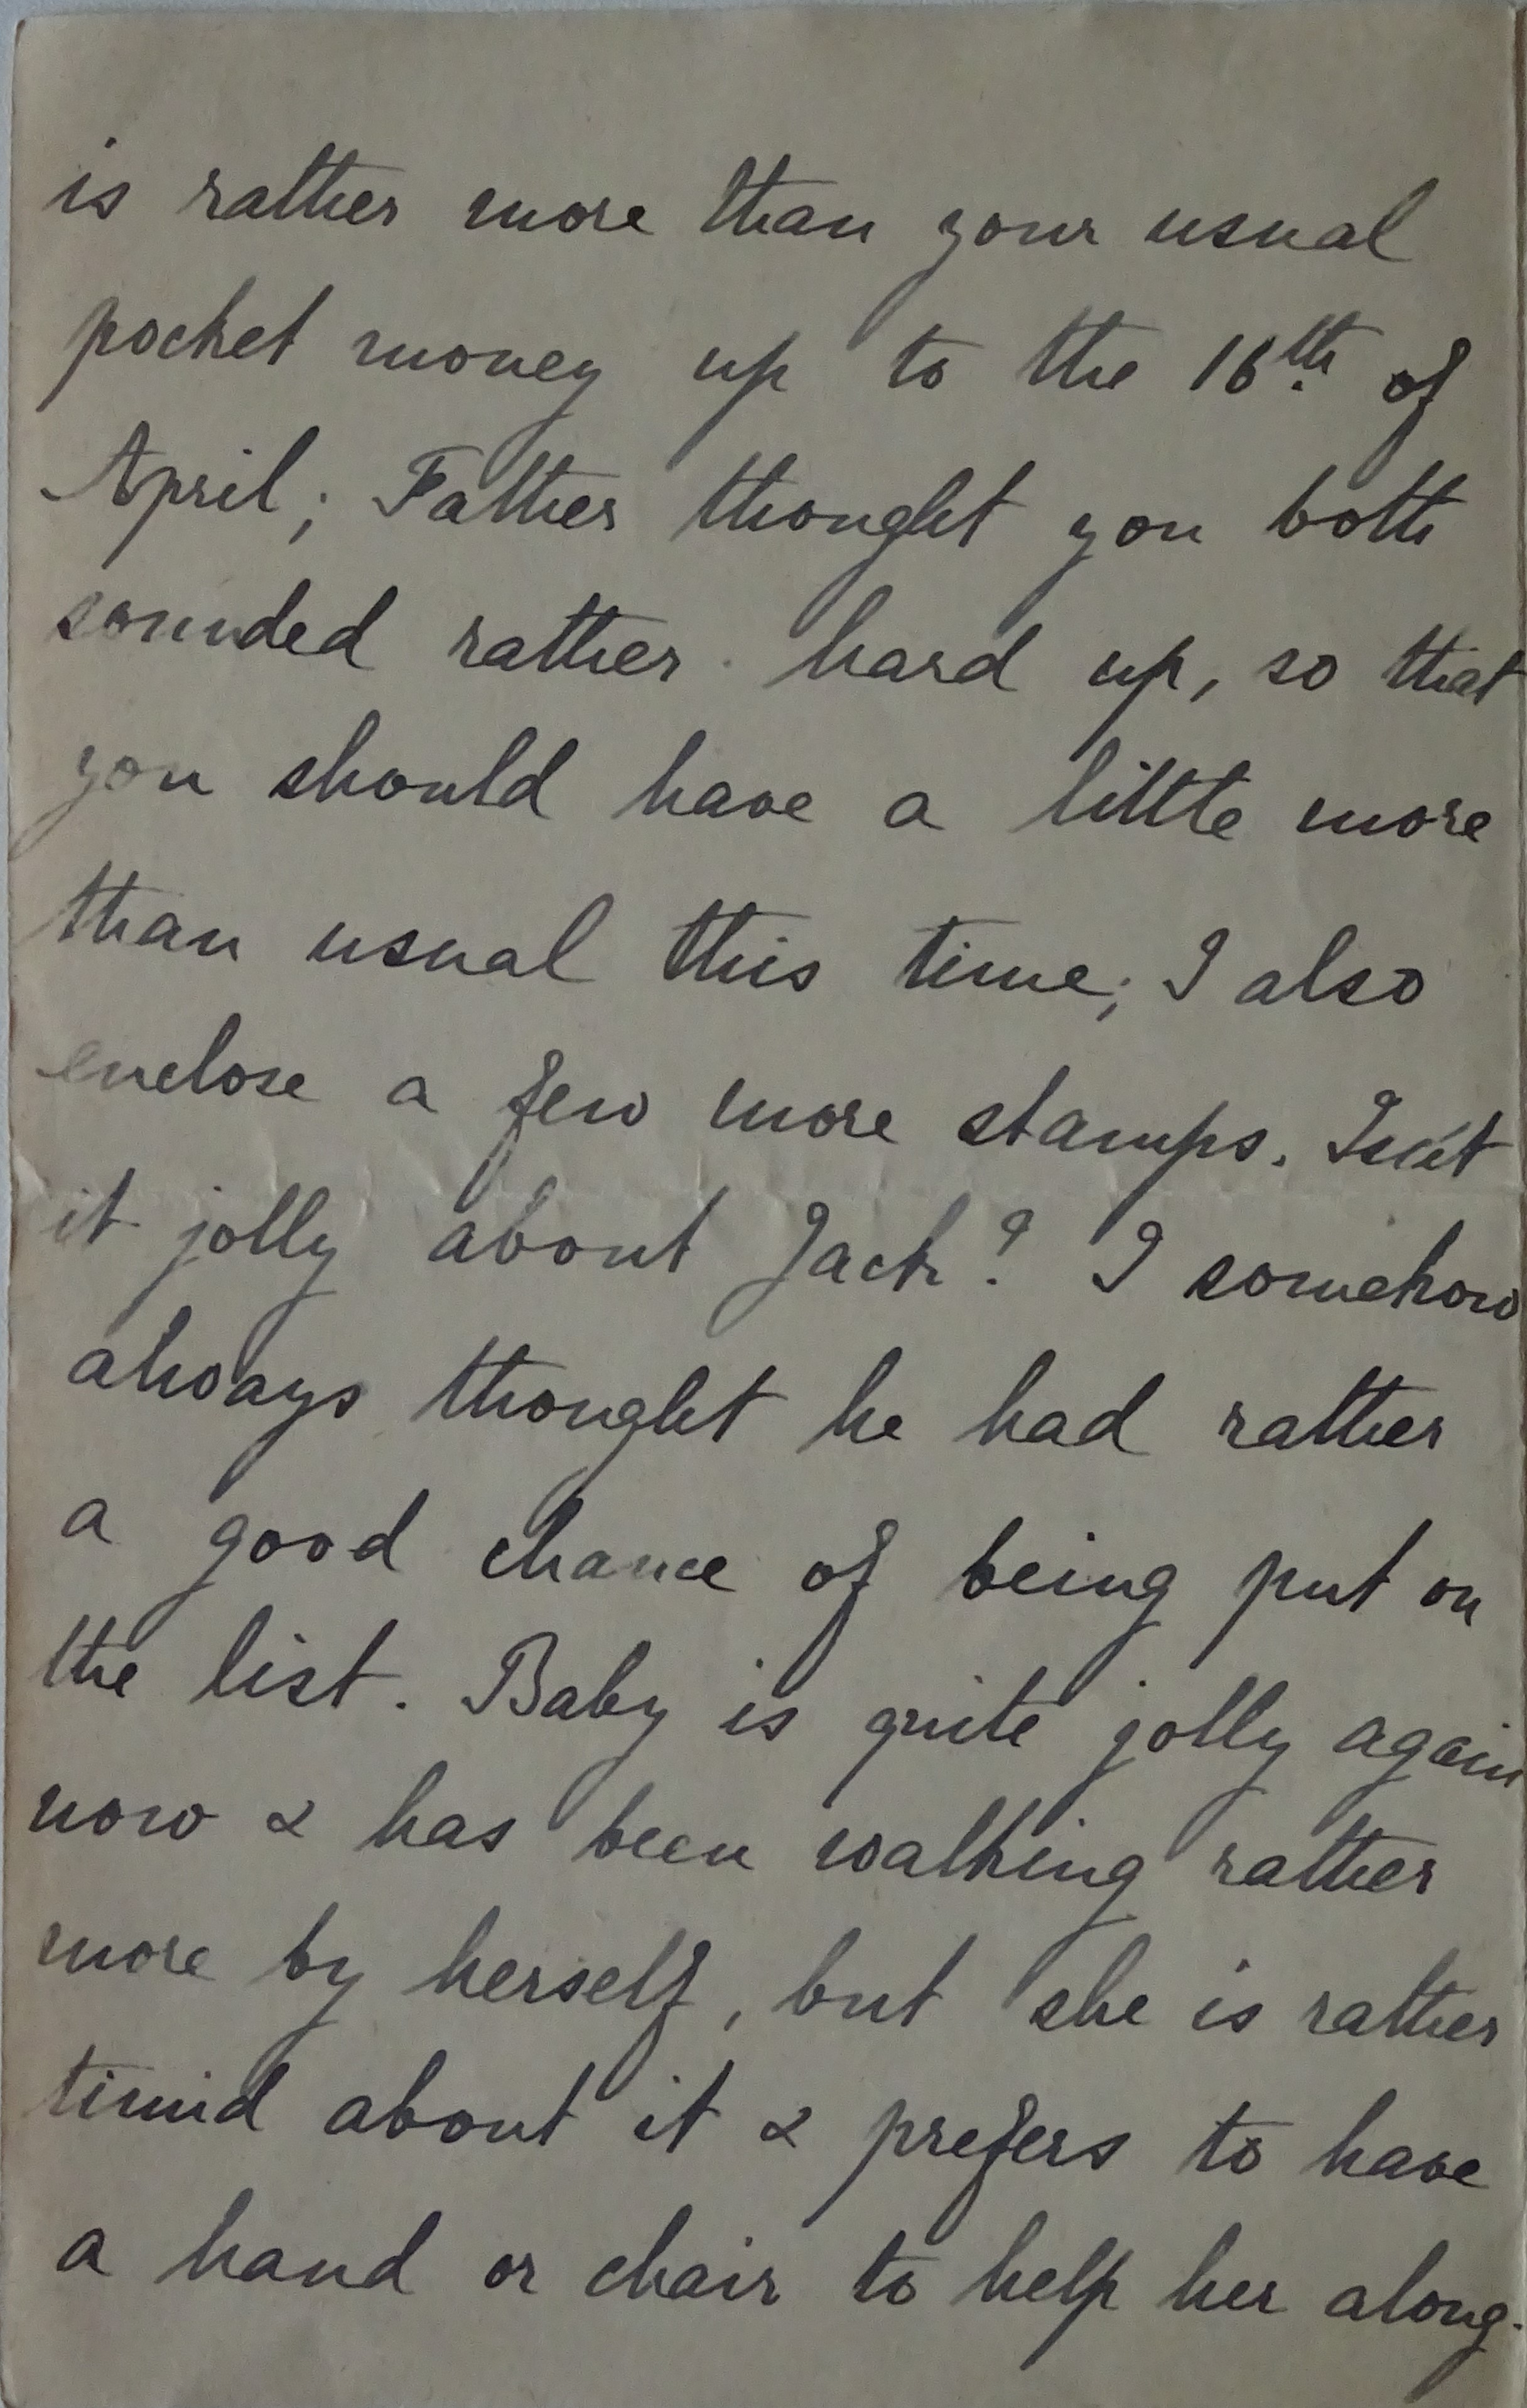 is rather more than your usual
pocket money up to the 16th. of
April; Father thought you both
sounded rather hard up, so that
you should have a little more
than usual this time; I also
enclose a few more stamps. Isn't
it jolly about Jack? I somehow
always thought he had rather
a good chance of being put on
the list. Baby is quite jolly again
now & has been walking rather
more by herself, but she is rather
timid about it & prefers to have
a hand or chair to help her along.